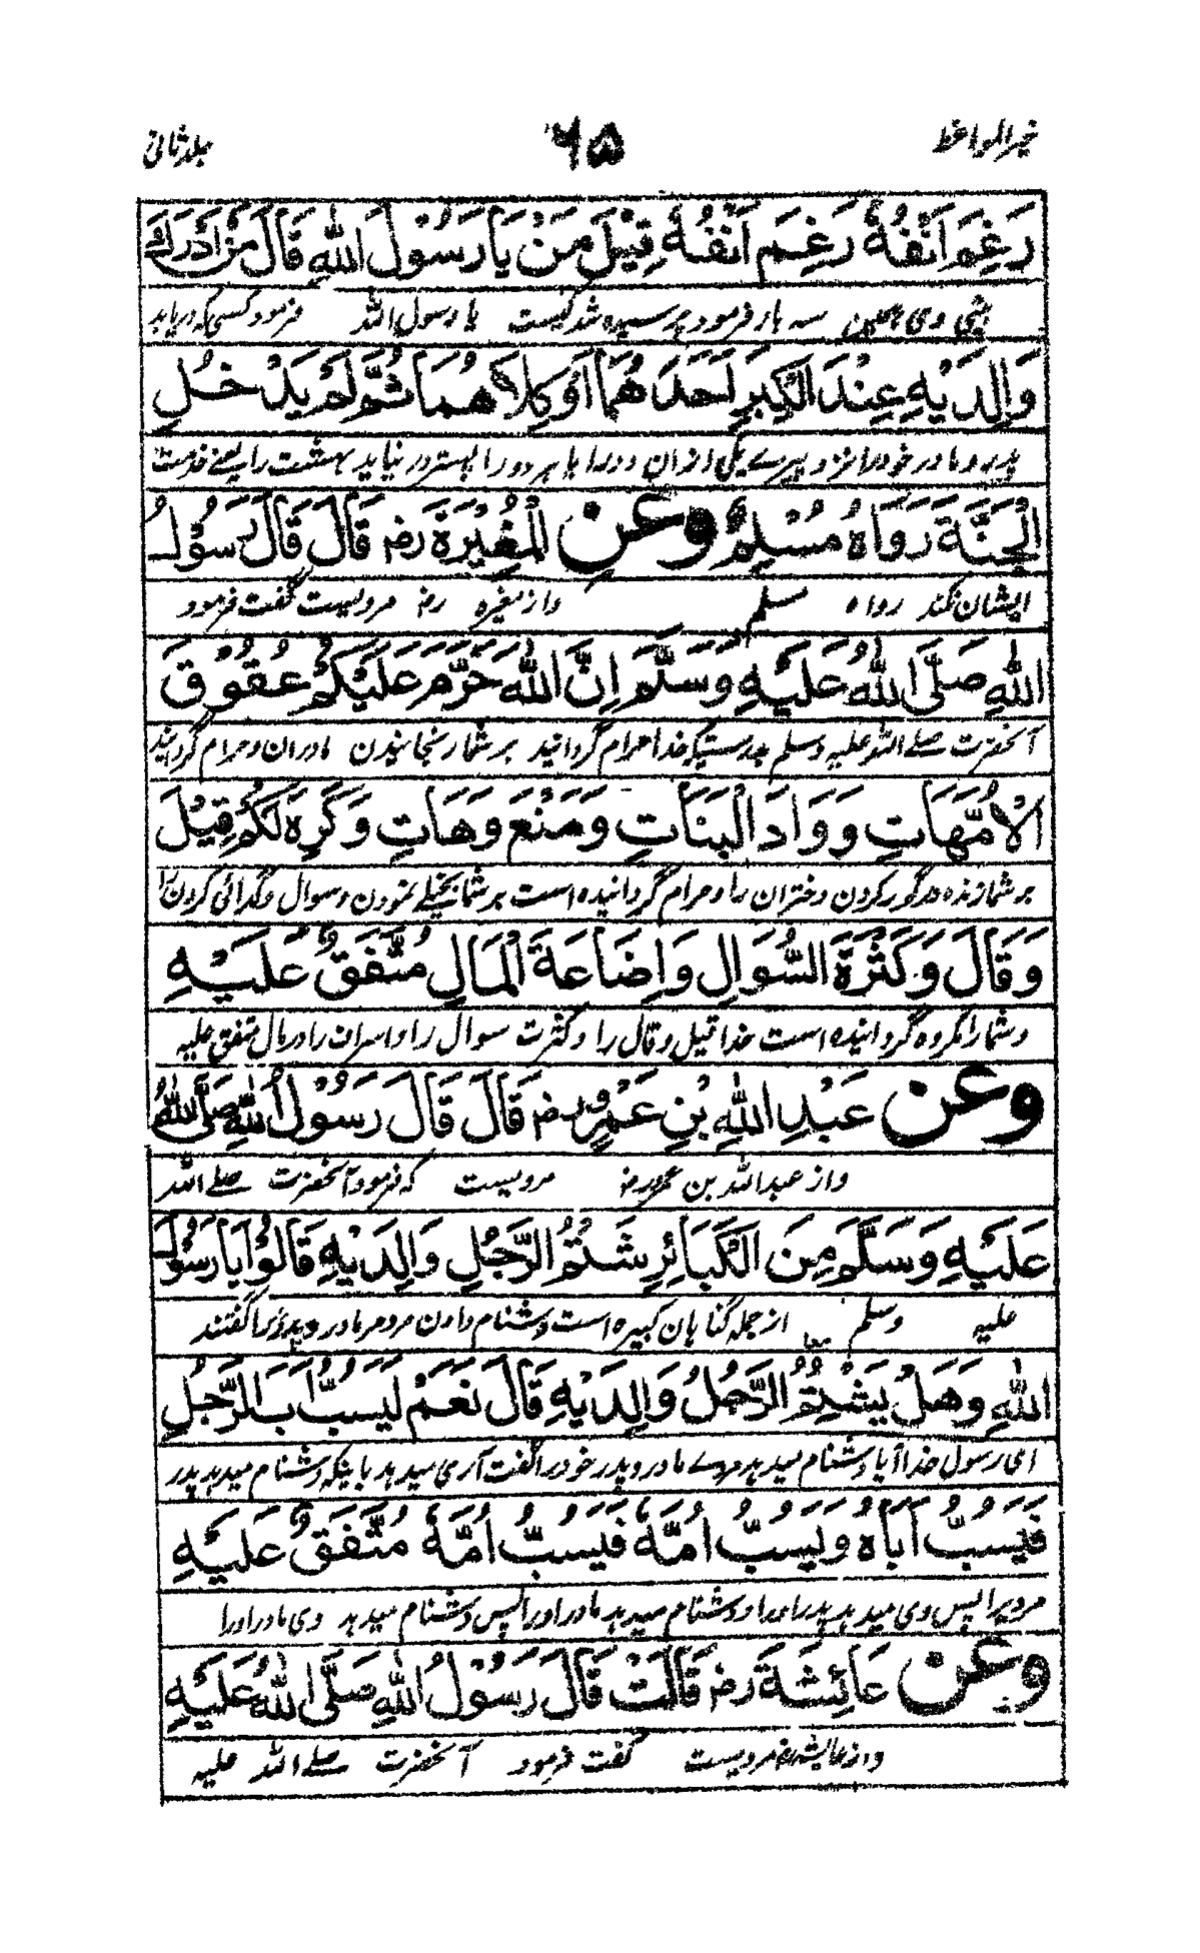 خیر المواعظ ۶۵ جلد ثانی
رَغِمَ اَنْفُهٗ رَغِمَ اَنْفُهٗ قِيْلَ مَنْ يَا رَسُوْلَ اللهِ قَالَ مَنْ اَدْرَكَ
بینی وی همچنین سه بار فرمود پرسیده شد کیست یا رسول الله فرمود کسی که دریابد
وَالِدَيْهِ عِنْدَ الْكِبَرِ اَحَدَهُمَا اَوْ كِلَاهُمَا ثُمَّ لَمْ يَدْخُلِ
پدر و مادر خود را نزد پیرے یکی از ان دو را یا هر دو را پستر در نیاید بهشت را یعنے خدمت
الْجَنَّةَ رَوَاهُ مُسْلِمٌ وَعَنِ الْمُغِيْرَةَ رض قَالَ قَالَ رَسُوْلُ
ایشان نکند رواه مسلم و از مغیره رض مرویست گفت فرمود
اللهِ صَلَّى اللهُ عَلَيْهِ وَسَلَّمَ اِنَّ اللهَ حَرَّمَ عَلَيْكُمْ عُقُوْقَ
آنحضرت صلے الله علیه وسلم بدرستیکه خدا حرام گردانید بر شما رنجانیدن مادران و حرام گردانید
الْاُمَّهَاتِ وَوَادَ الْبَنَاتِ وَمَنَعَ وَهَاتِ وَكَرِهَ لَكُمْ قِيْلَ
بر شما زنده در گور کردن دختران را و حرام گردانیده است بر شما بخیلے نمودن و سوال و گدائی کردن را
وَقَالَ وَكَثْرَةَ السُّوَالِ وَاِضَاعَةَ الْمَالِ مُتَّفَقٌ عَلَيْهِ
و شما را مکروه گردانیده است خدا قیل و قال را و کثرت سوال را و اسراف را در مال متفق علیه
وَعَنْ عَبْدِ اللهِ بْنِ عَمْرٍو رض قَالَ قَالَ رَسُوْلُ اللهِ صَلَّى اللهُ
و از عبدالله بن عمرو رض مرویست که فرمود آنحضرت صلے الله
عَلَيْهِ وَسَلَّمَ مِنَ الْكَبَائِرِ شَتْمُ الرَّجُلِ وَالِدَيْهِ قَالُوْا يَا رَسُوْلَ
علیه وسلم از جمله گناهان کبیره است دشنام دادن مرد مر مادر و پدر را گفتند
اللهِ وَهَلْ يَشْتِمُ الرَّجُلُ وَالِدَيْهِ قَالَ نَعَمْ يَسُبُّ اَبَا الرَّجُلِ
ای رسول خدا آیا دشنام میدهد مردے مادر و پدر خود را گفت آری میدهد باینکه دشنام میدهد پدر
فَيَسُبُّ اَبَاهُ وَيَسُبُّ اُمَّهٗ فَيَسُبُّ اُمَّهٗ مُتَّفَقٌ عَلَيْهِ
مرد یرا پس وی میدهد پدر او را و دشنام میدهد مادر او را پس دشنام میدهد وی مادر او را
وَعَنْ عَائِشَةَ رض قَالَتْ قَالَ رَسُوْلُ اللهِ صَلَّى اللهُ عَلَيْهِ
و از عایشه رض مرویست گفت فرمود آنحضرت صلے الله علیه